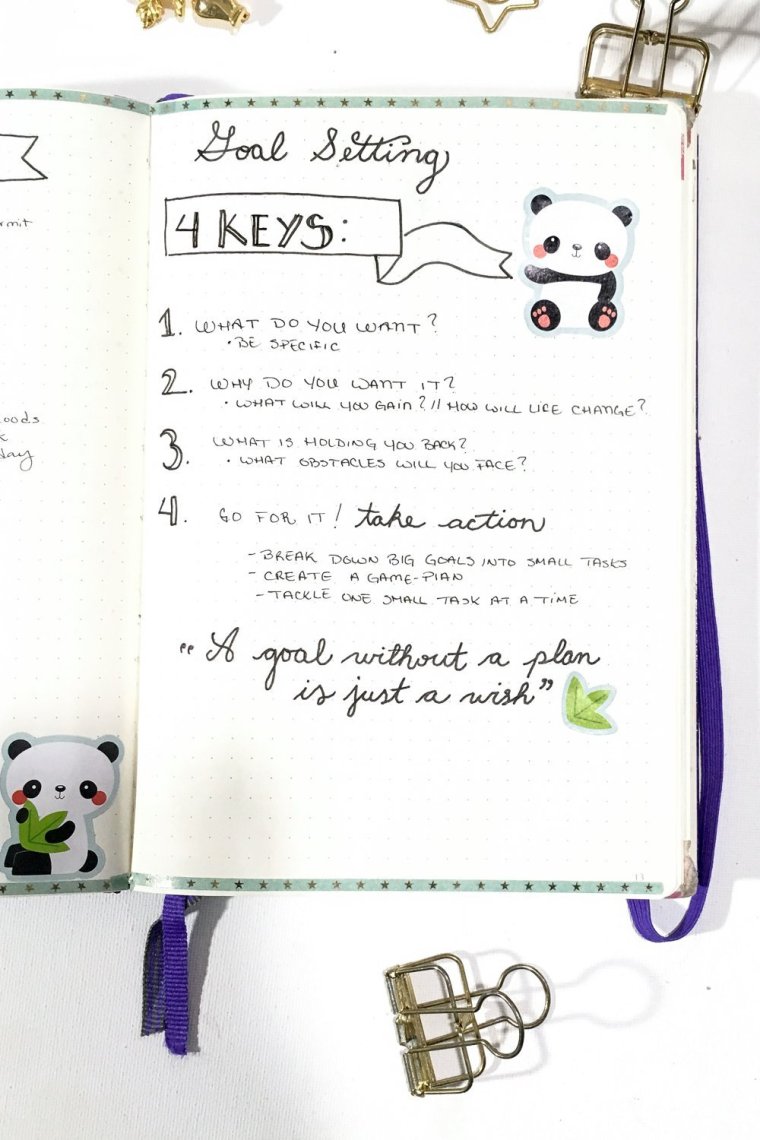 Goal Setting
4 KEYS:
1. WHAT DO YOU WANT?
• BE SPECIFIC
2. WHY DO YOU WANT IT?
• WHAT WILL YOU GAIN? // HOW WILL LIFE CHANGE?
3. WHAT IS HOLDING YOU BACK?
• WHAT OBSTACLES WILL YOU FACE?
4. GO FOR IT! take action
- BREAK DOWN BIG GOALS INTO SMALL TASKS
- CREATE A GAME-PLAN
- TACKLE ONE SMALL TASK AT A TIME
"A goal without a plan
is just a wish"